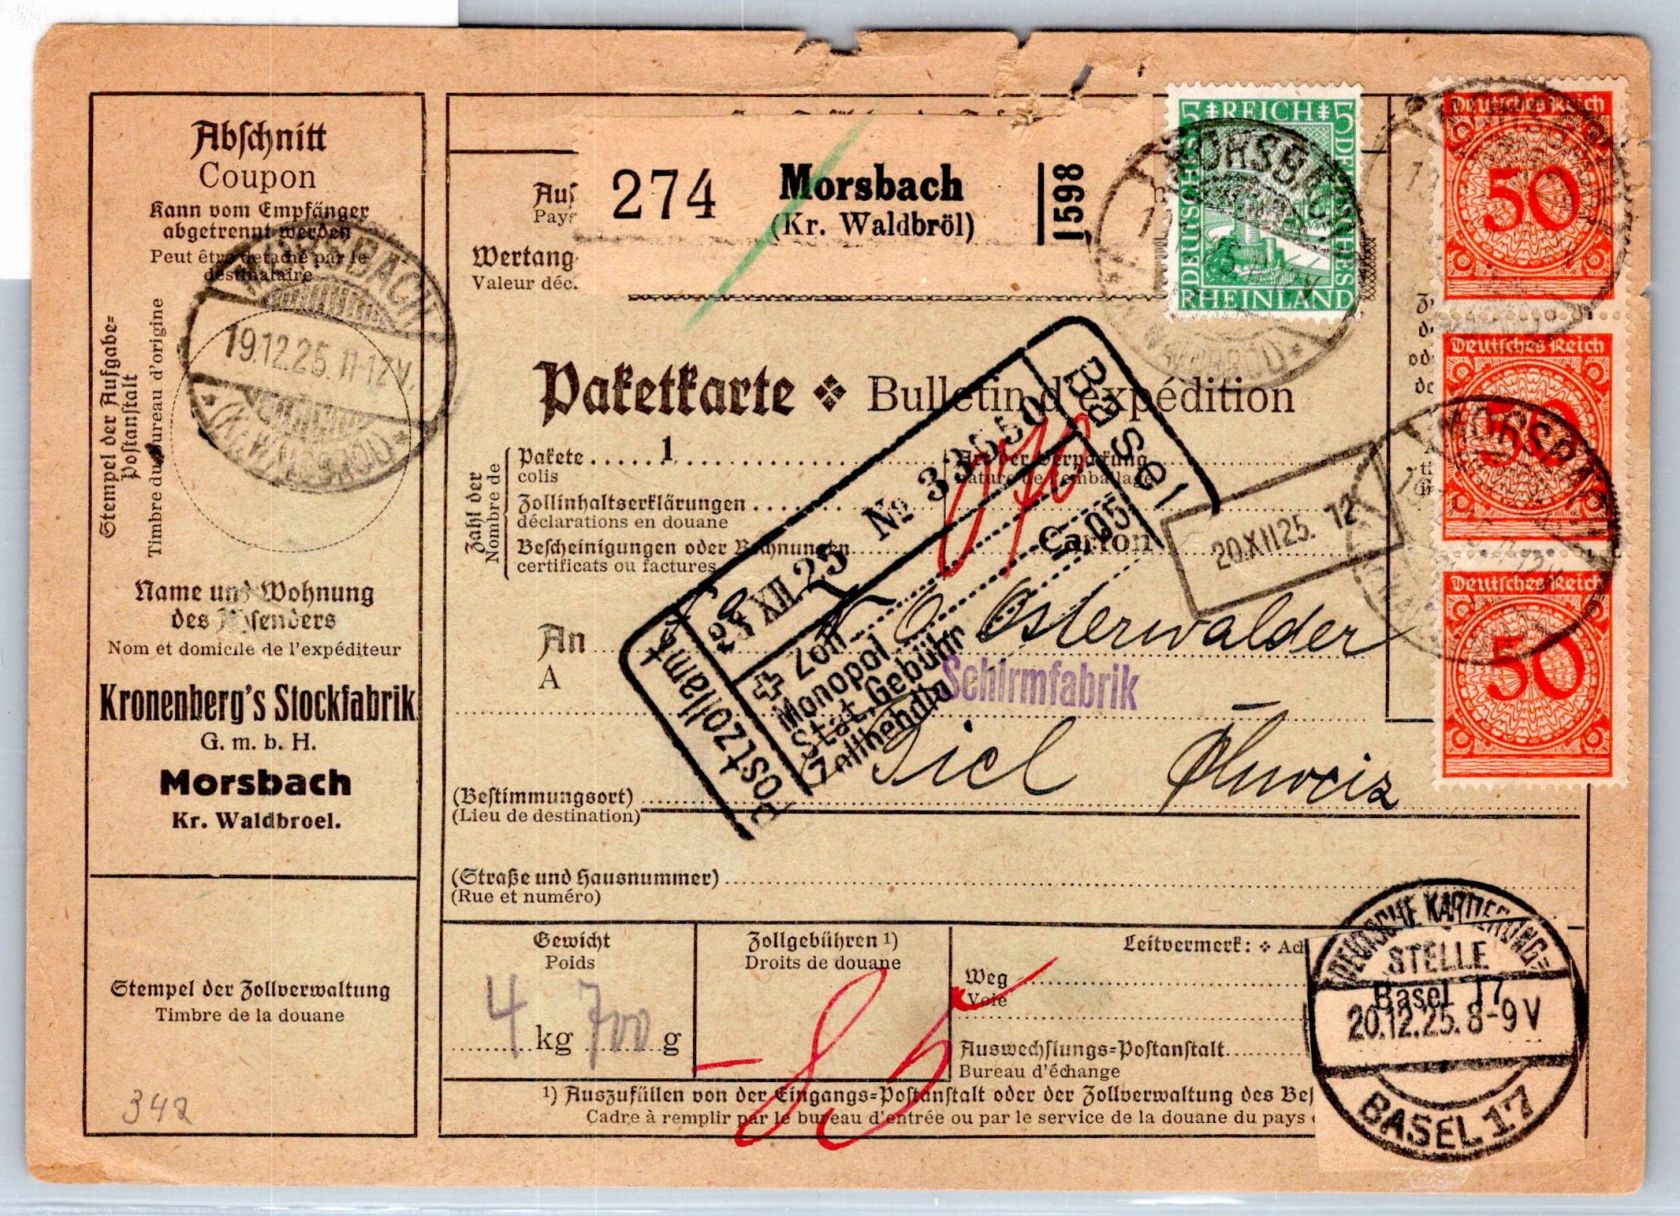 Abschnitt
Coupon
Kann vom Empfänger
abgetrennt werden
Peut être detaché par le
destinataire
Stempel der Aufgabe=
Postanstalt
Timbre du bureau d'origine
MORSBACH
19.12.25. 11-12 V.
(Kr. WALDBRÖL)
Name und Wohnung
des Absenders
Nom et domicile de l'expéditeur
Kronenberg's Stockfabrik
G. m. b. H.
Morsbach
Kr. Waldbroel.
Stempel der Zollverwaltung
Timbre de la douane
342
274
Morsbach
(Kr. Waldbröl)
1598
Wertang
Valeur déc.
5 REICH 5
DEUTSCHES
RHEINLAND
MORSBACH
Deutsches Reich
50
Deutsches Reich
50
Deutsches Reich
50
MORSBACH
Paketkarte Bulletin d'expédition
Zahl der
Nombre de
Pakete 1
colis
Zollinhaltserklärungen
déclarations en douane
Bescheinigungen oder Rechnungen
certificats ou factures
Art der Verpackung
Nature de l'emballage
Carton
20.XII25. 12
Basel
Nº 33650
23 XII 25
Postzollamt
Zoll
Monopol
Stat. Gebühr
Zollbehdlg
05
An
A
Osterwalder
Schirmfabrik
Biel Schweiz
(Bestimmungsort)
(Lieu de destination)
(Straße und Hausnummer)
(Rue et numéro)
Gewicht
Poids
4 kg 700 g
Zollgebühren 1)
Droits de douane
Leitvermerk: Ad
Weg
Voie
Auswechslungs=Postanstalt
Bureau d'échange
-85
1) Auszufüllen von der Eingangs=Postanstalt oder der Zollverwaltung des Bes
Cadre à remplir par le bureau d'entrée ou par le service de la douane du pays
DEUTSCHE KARTIERUNG=
STELLE
Basel 17
20.12.25. 8-9 V
BASEL 17